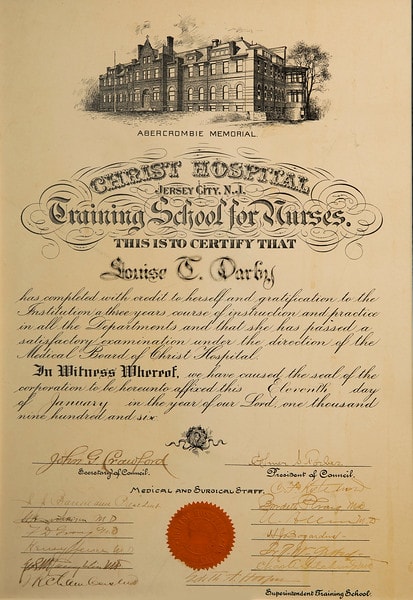 ABERCROMBIE MEMORIAL.
CHRIST HOSPITAL
JERSEY CITY, N.J.
Training School for Nurses.
THIS IS TO CERTIFY THAT
Louise T. Darby
has completed with credit to herself and gratification to the
Institution a three years course of instruction and practice
in all the Departments and that she has passed a
satisfactory examination under the direction of the
Medical Board of Christ Hospital.
In Witness Whereof, we have caused the seal of the
corporation to be hereunto affixed this Eleventh day
of January in the year of our Lord, one thousand
nine hundred and six
John G Crawford
Secretary of Council.
President of Council.
MEDICAL AND SURGICAL STAFF.
Superintendent Training School.